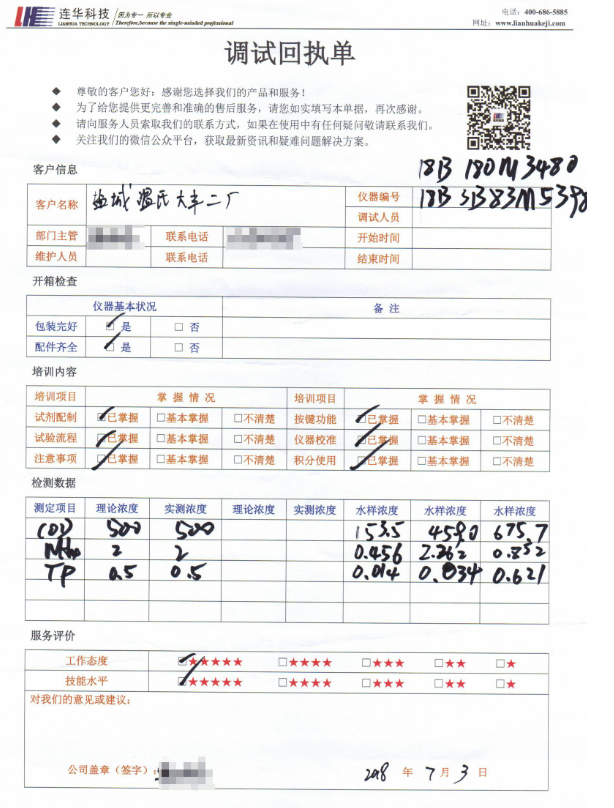 LHE 连华科技 LIANHUA TECHNOLOGY 因为专一 所以专业 Therefore,because the single-minded professional
电话：400-686-5885
网址：www.lianhuakeji.com
调试回执单
◆ 尊敬的客户您好：感谢您选择我们的产品和服务！
◆ 为了给您提供更完善和准确的售后服务，请您如实填写本单据，再次感谢。
◆ 请向服务人员索取我们的联系方式，如果在使用中有任何疑问敬请联系我们。
◆ 关注我们的微信公众平台，获取最新资讯和疑难问题解决方案。
客户信息
18B 180M3480
客户名称 盐城温氏大丰二厂 仪器编号 18B 3B83M5398
调试人员
部门主管 联系电话 开始时间
维护人员 联系电话 结束时间
开箱检查
仪器基本状况 备 注
包装完好 ☑ 是 □ 否
配件齐全 ☑ 是 □ 否
培训内容
培训项目 掌 握 情 况 培训项目 掌 握 情 况
试剂配制 ☑已掌握 □基本掌握 □不清楚 按键功能 ☑已掌握 □基本掌握 □不清楚
试验流程 ☑已掌握 □基本掌握 □不清楚 仪器校准 ☑已掌握 □基本掌握 □不清楚
注意事项 ☑已掌握 □基本掌握 □不清楚 积分使用 ☑已掌握 □基本掌握 □不清楚
检测数据
测定项目 理论浓度 实测浓度 理论浓度 实测浓度 水样浓度 水样浓度 水样浓度
COD 500 500 153.5 459.0 675.7
2 2 0.456 2.262 0.852
TP 0.5 0.5 0.014 0.034 0.621
服务评价
工作态度 ☑★★★★★ □★★★★ □★★★ □★★ □★
技能水平 ☑★★★★★ □★★★★ □★★★ □★★ □★
对我们的意见或建议：
公司盖章（签字）： 2018 年 7 月 3 日